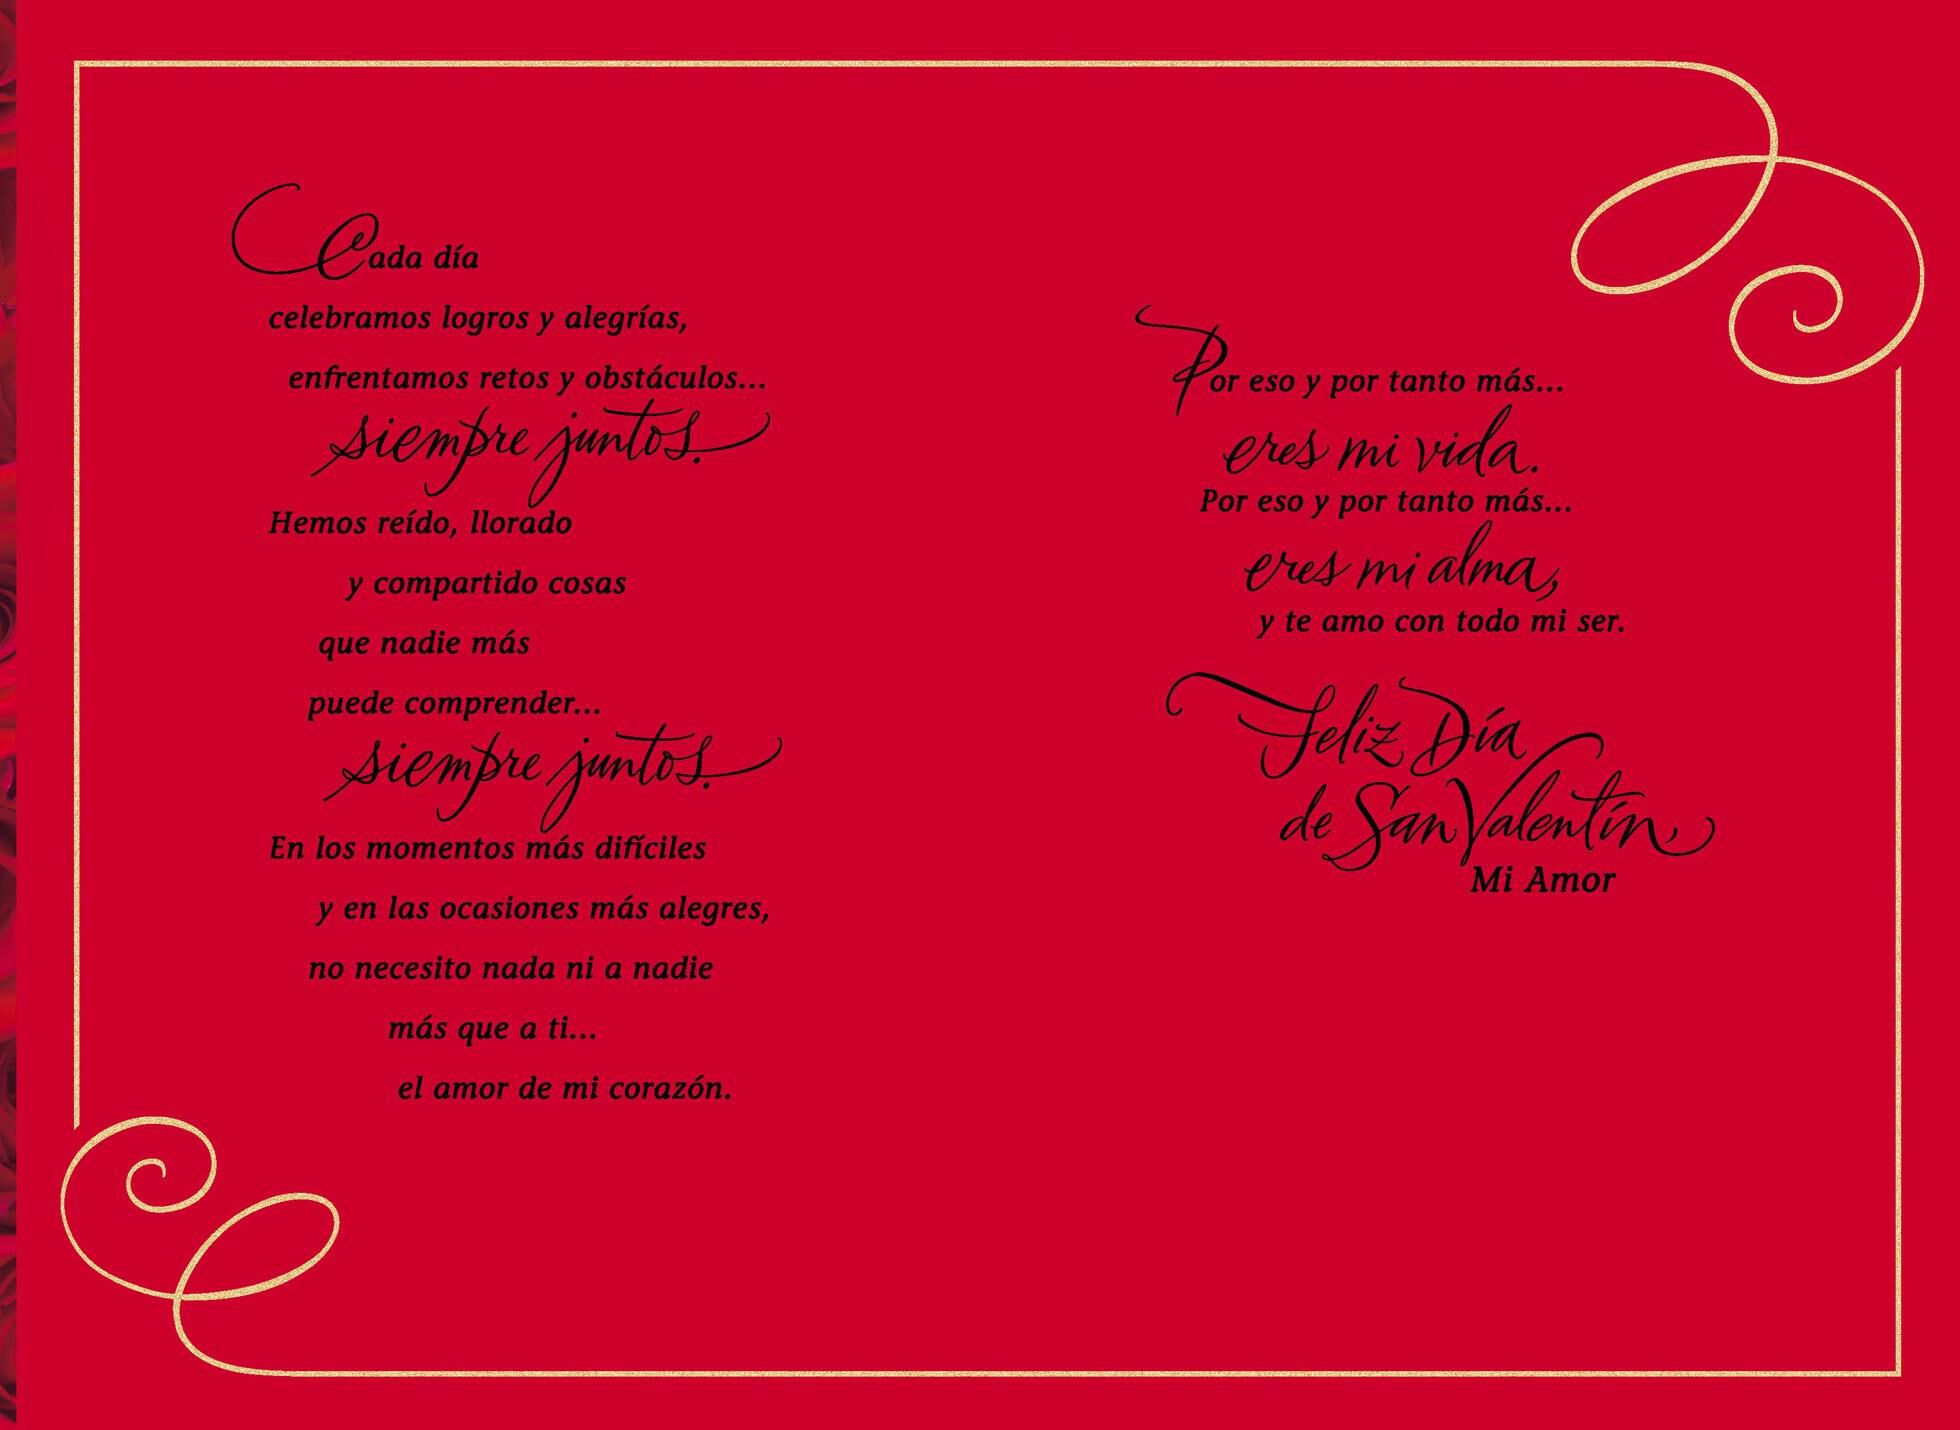 Cada día
celebramos logros y alegrías,
enfrentamos retos y obstáculos...
siempre juntos.
Hemos reído, llorado
y compartido cosas
que nadie más
puede comprender...
siempre juntos.
En los momentos más difíciles
y en las ocasiones más alegres,
no necesito nada ni a nadie
más que a ti...
el amor de mi corazón.
Por eso y por tanto más...
eres mi vida.
Por eso y por tanto más...
eres mi alma,
y te amo con todo mi ser.
Feliz Día
de San Valentín,
Mi Amor